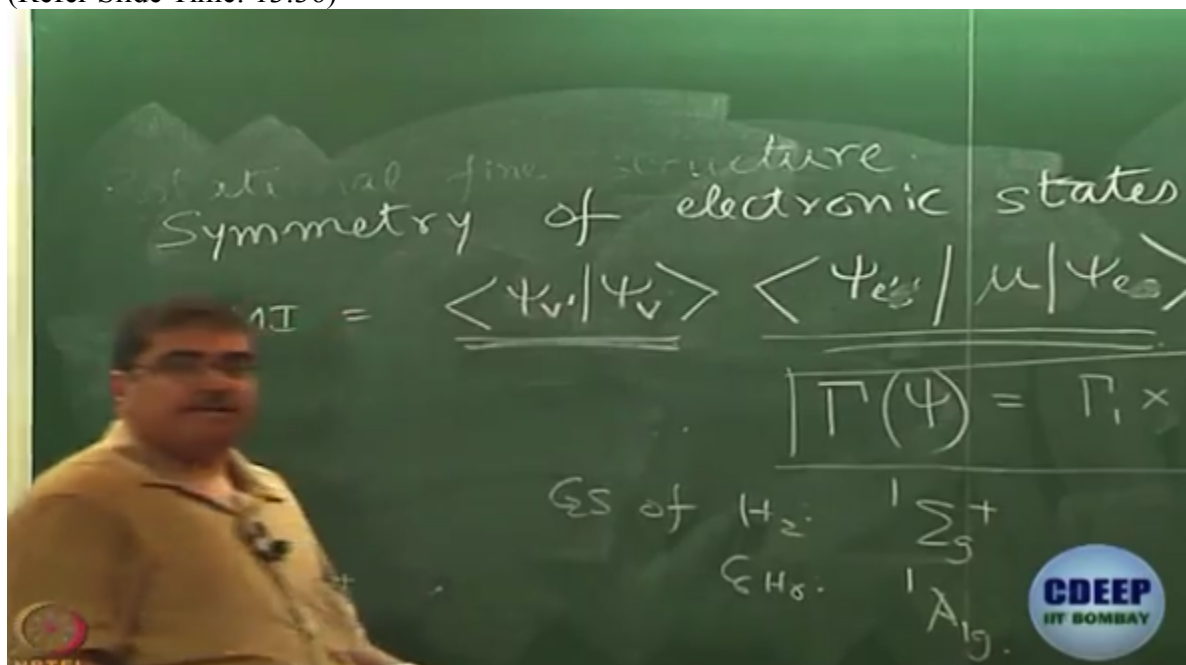 (Refer Slide Time: 15:50)
fine structure.
Symmetry of electronic states
= <Ψv'|Ψv> <Ψe'|μ|Ψe>
Γ(Ψ) = Γ₁ ×
GS of H₂: ¹Σg⁺
¹A₁g.
CDEEP
IIT BOMBAY
NPTEL